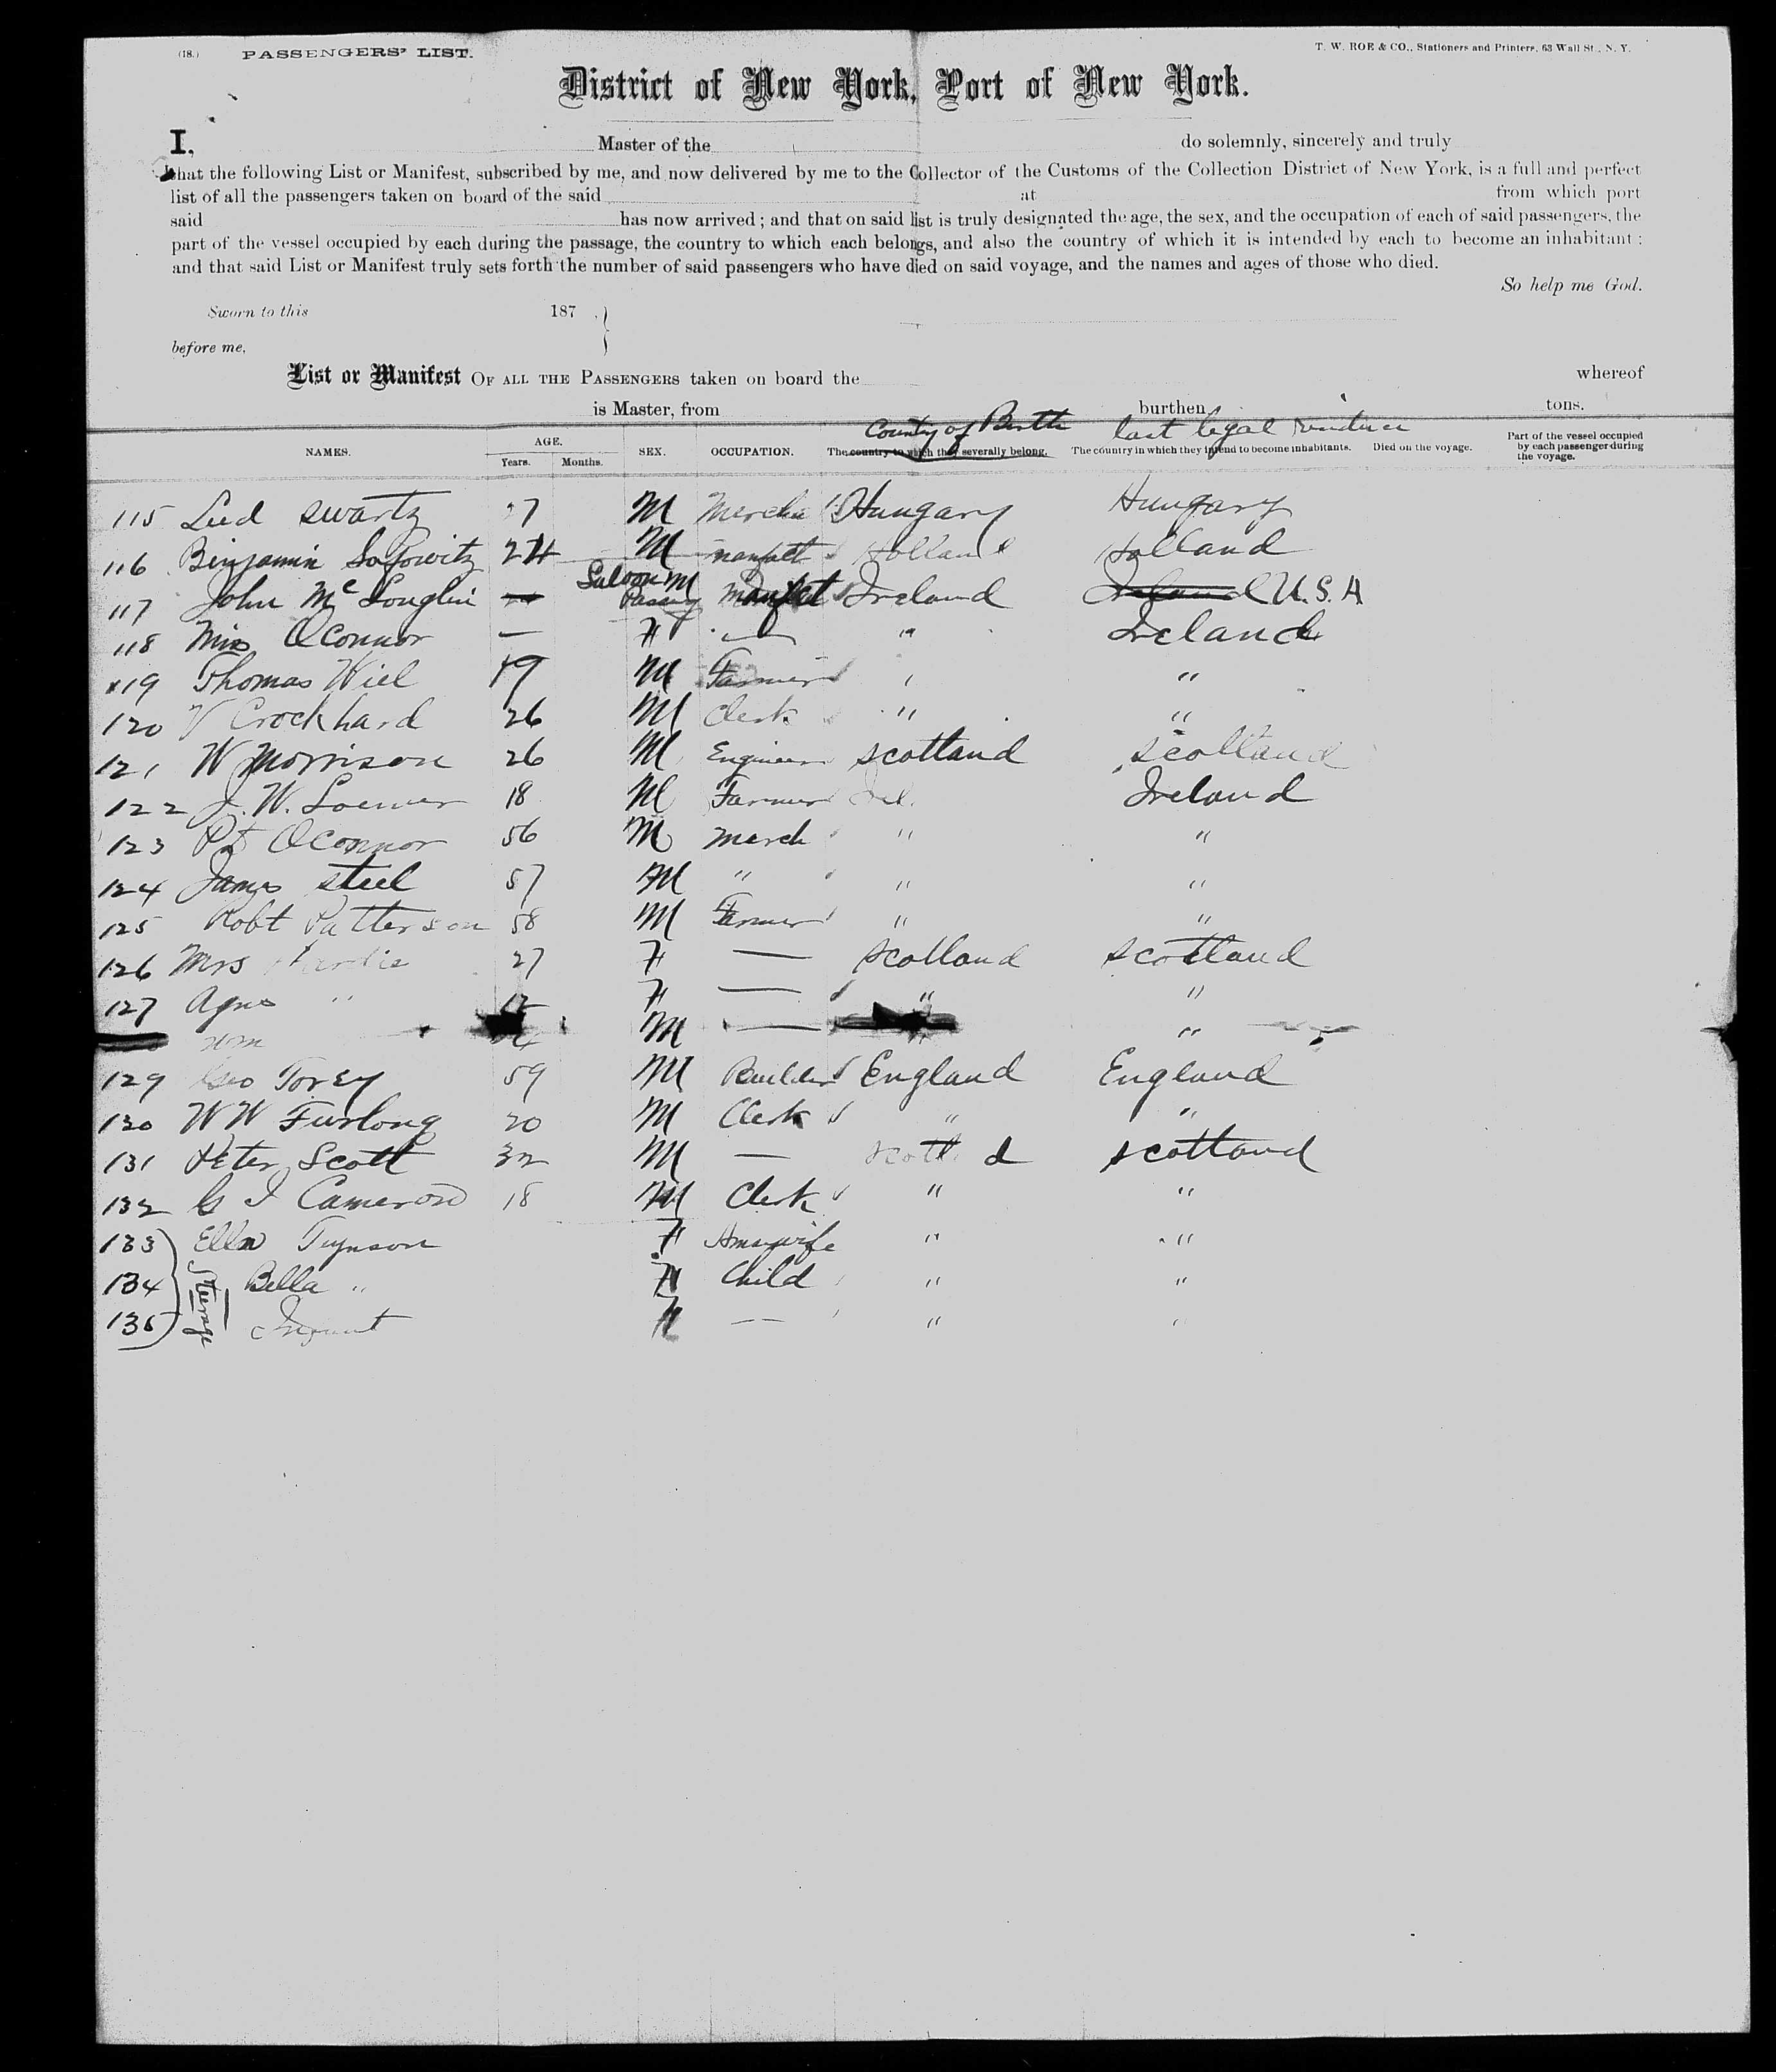 (18.) PASSENGERS' LIST. T. W. ROE & CO., Stationers and Printers, 63 Wall St., N. Y.
District of New York, Port of New York.
I, Master of the do solemnly, sincerely and truly
that the following List or Manifest, subscribed by me, and now delivered by me to the Collector of the Customs of the Collection District of New York, is a full and perfect
list of all the passengers taken on board of the said at from which port
said has now arrived; and that on said list is truly designated the age, the sex, and the occupation of each of said passengers, the
part of the vessel occupied by each during the passage, the country to which each belongs, and also the country of which it is intended by each to become an inhabitant;
and that said List or Manifest truly sets forth the number of said passengers who have died on said voyage, and the names and ages of those who died.
So help me God.
Sworn to this 187
before me,
List or Manifest OF ALL THE PASSENGERS taken on board the whereof
is Master, from burthen tons.
County of Birth last legal residence
NAMES. AGE. Years. Months. SEX. OCCUPATION. The country to which they severally belong. The country in which they intend to become inhabitants. Died on the voyage. Part of the vessel occupied by each passenger during the voyage.
115 swartz M Hungary Hungary
116 Binjamin 24 M Holland Holland
117 John Mc Louglin Saloon Passeng M Manfct Ireland Ireland U.S.A
118 Miss OConnor — F — " Ireland
119 Thomas Wiel 19 M Farmer " "
120 Crockhard 26 M Clerk " "
121 W Morrison 26 M Engineer Scotland Scotland
122 J. W. 18 M Farmer Irel. Ireland
123 Pt OConnor 56 M March " "
124 James Steel 57 M " " "
125 Robt Patterson 58 M Farmer " "
126 Mrs 27 F — Scotland Scotland
127 Agnes " F — " "
Wm M — " "
129 Geo Torey 59 M Builder England England
130 W W Furlong 20 M Clerk " "
131 Peter Scott 32 M — Scotland Scotland
132 G I Cameron 18 M Clerk " "
133 Ella F " "
134 Bella " F Child " "
135 Infant F — " "
Steerage